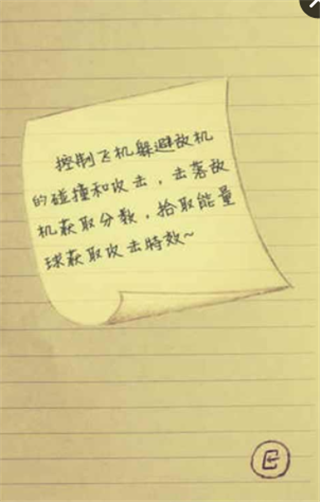 控制飞机躲避敌机
的碰撞和攻击，击落敌
机获取分数，拾取能量
球获取攻击特效~